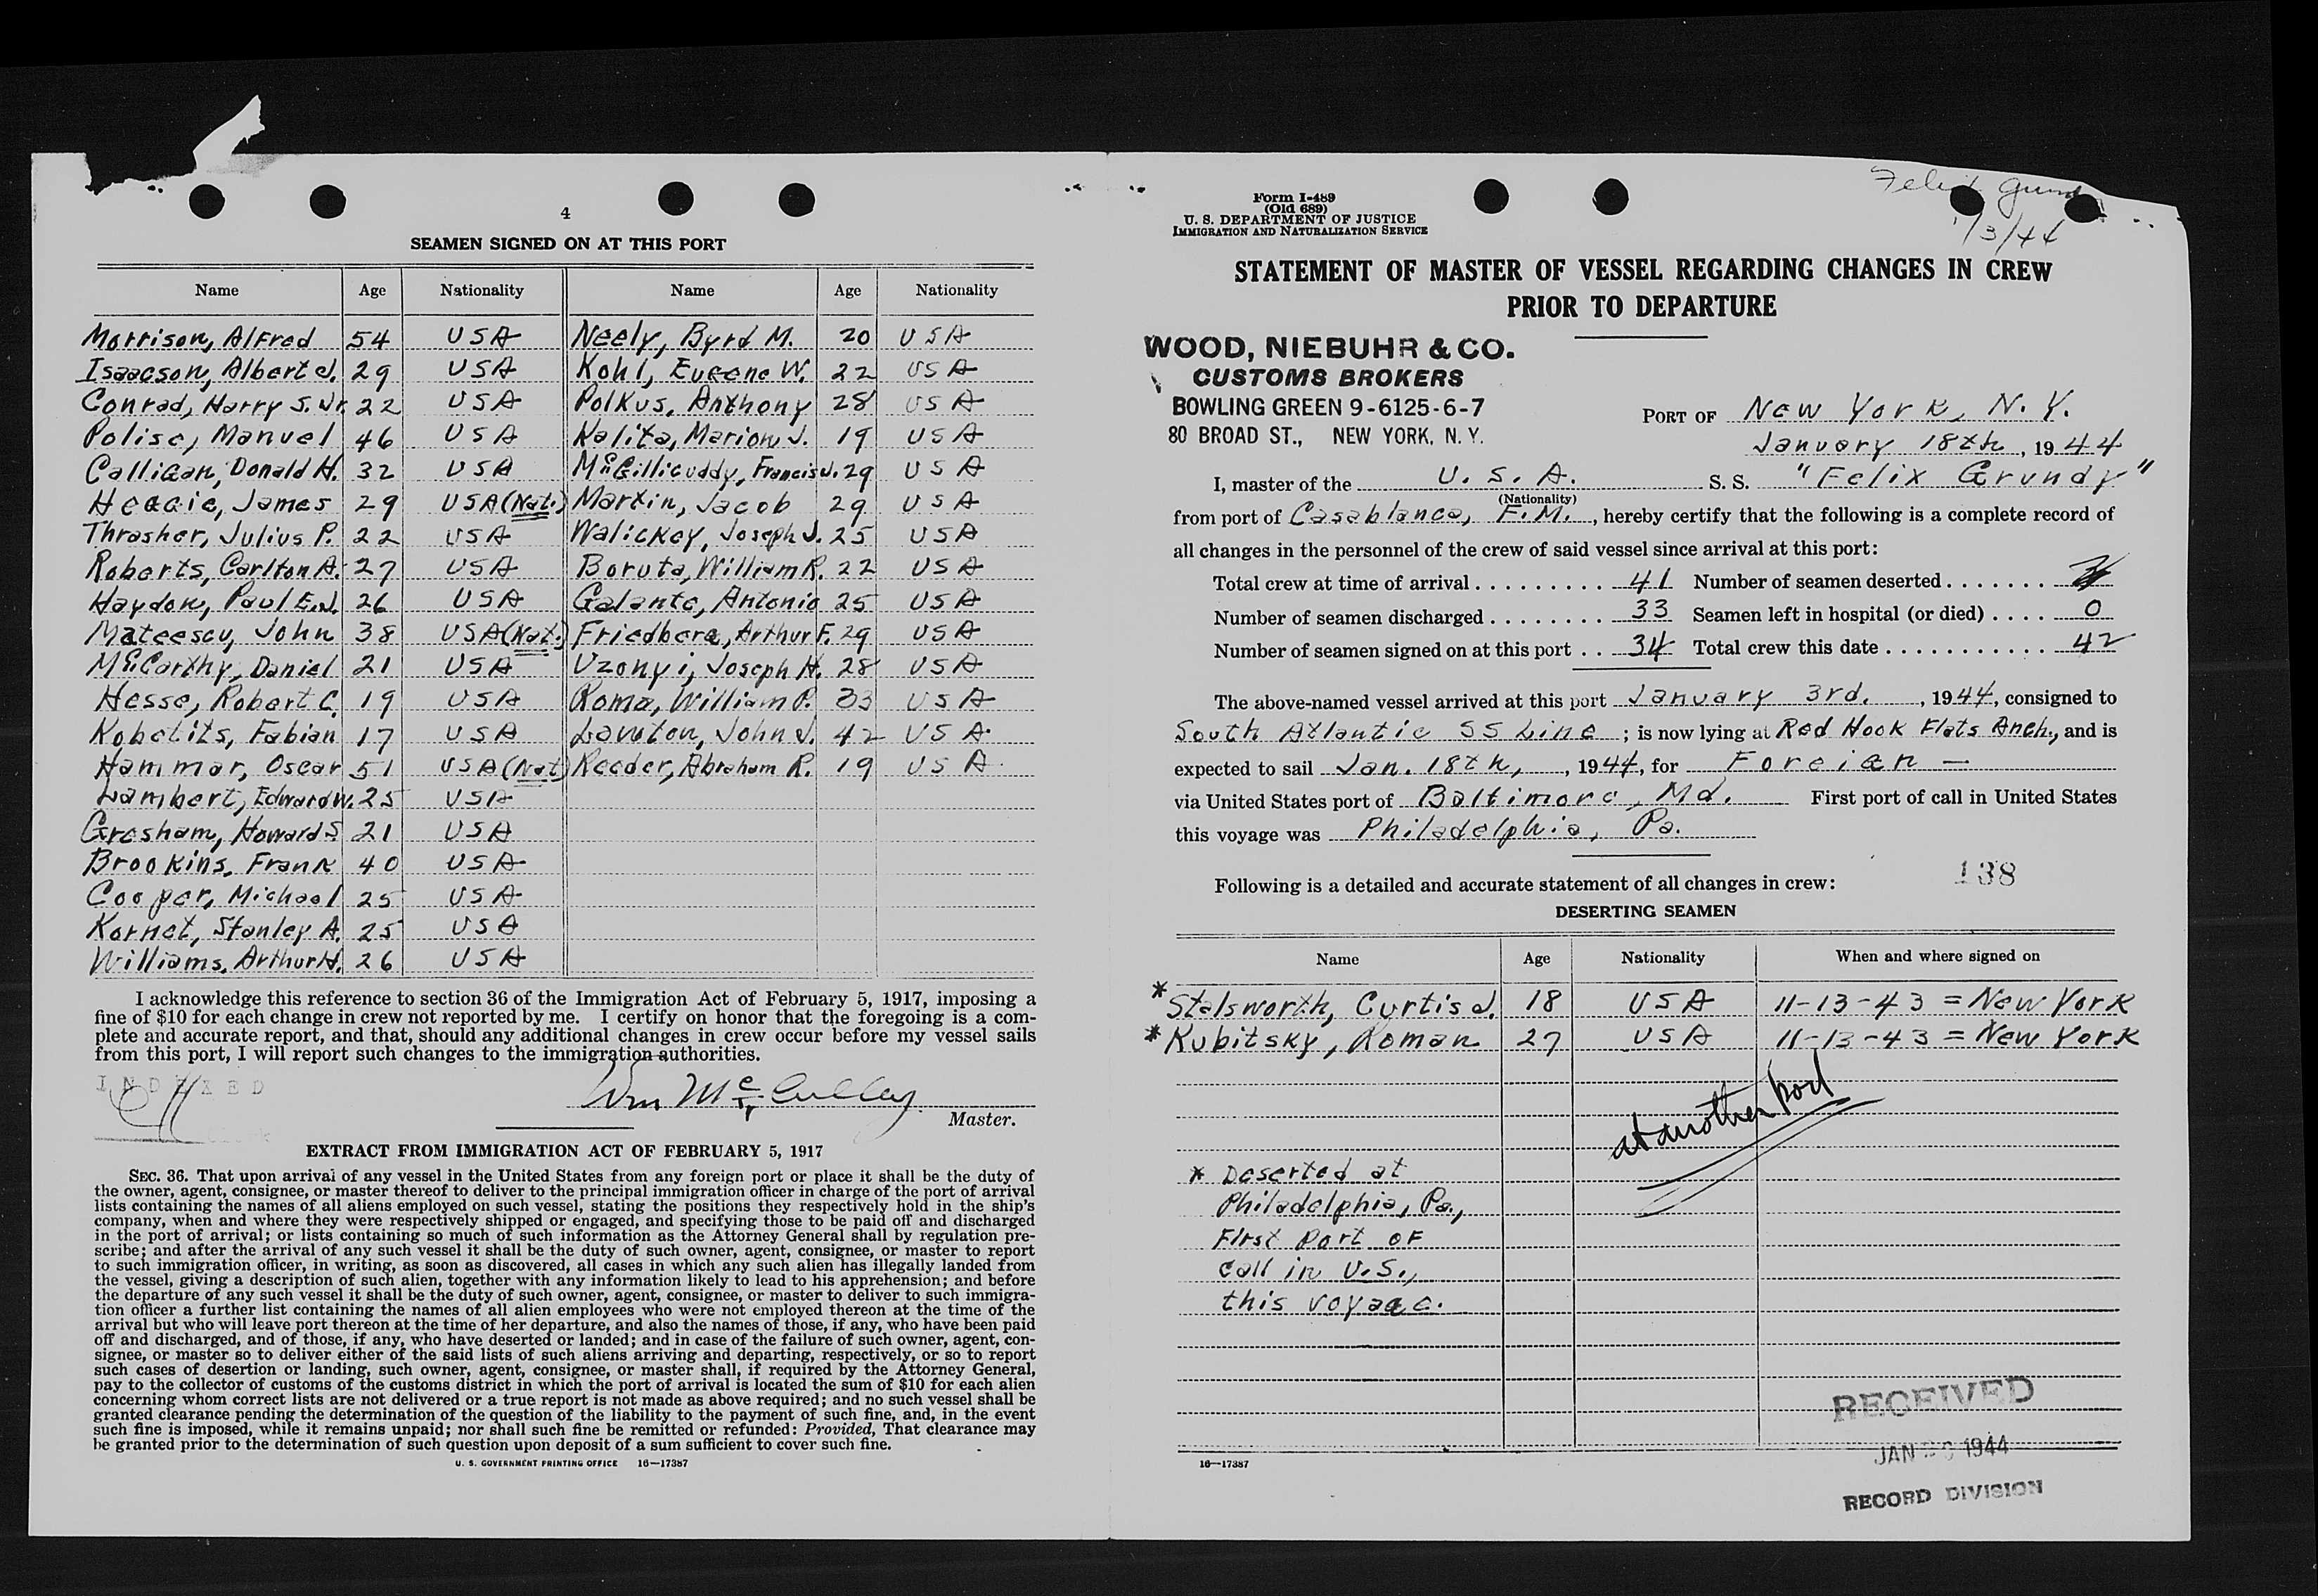 4
SEAMEN SIGNED ON AT THIS PORT
Name Age Nationality Name Age Nationality
Morrison, Alfred 54 USA Neely, Byrd M. 20 USA
Isaacson, Albert J. 29 USA Kohl, Eugene W. 22 USA
Conrad, Harry S. Jr. 22 USA Polkus, Anthony 28 USA
Polise, Manuel 46 USA Kalita, Marion J. 19 USA
Calligan, Donald H. 32 USA McGillicuddy, Francis J. 29 USA
Heggie, James 29 USA (Nat.) Martin, Jacob 29 USA
Thrasher, Julius P. 22 USA Walickey, Joseph J. 25 USA
Roberts, Carlton A. 27 USA Boruta, William R. 22 USA
Haydon, Paul E.J. 26 USA Galante, Antonio 25 USA
Mateescu, John 38 USA (Nat.) Friedberg, Arthur F. 29 USA
McCarthy, Daniel 21 USA Uzonyi, Joseph H. 28 USA
Hesse, Robert C. 19 USA Roma, William P. 33 USA
Kobelits, Fabian 17 USA Lawton, John J. 42 USA
Hammar, Oscar 51 USA (Nat) Reeder, Abraham R. 19 USA
Lambert, Edward W. 25 USA
Gresham, Howard S 21 USA
Brookins, Frank 40 USA
Cooper, Michael 25 USA
Kornet, Stanley A. 25 USA
Williams, Arthur H. 26 USA
I acknowledge this reference to section 36 of the Immigration Act of February 5, 1917, imposing a
fine of $10 for each change in crew not reported by me. I certify on honor that the foregoing is a com-
plete and accurate report, and that, should any additional changes in crew occur before my vessel sails
from this port, I will report such changes to the immigration authorities.
INDEXED
Wm McCulley
Master.
EXTRACT FROM IMMIGRATION ACT OF FEBRUARY 5, 1917
SEC. 36. That upon arrival of any vessel in the United States from any foreign port or place it shall be the duty of
the owner, agent, consignee, or master thereof to deliver to the principal immigration officer in charge of the port of arrival
lists containing the names of all aliens employed on such vessel, stating the positions they respectively hold in the ship's
company, when and where they were respectively shipped or engaged, and specifying those to be paid off and discharged
in the port of arrival; or lists containing so much of such information as the Attorney General shall by regulation pre-
scribe; and after the arrival of any such vessel it shall be the duty of such owner, agent, consignee, or master to report
to such immigration officer, in writing, as soon as discovered, all cases in which any such alien has illegally landed from
the vessel, giving a description of such alien, together with any information likely to lead to his apprehension; and before
the departure of any such vessel it shall be the duty of such owner, agent, consignee, or master to deliver to such immigra-
tion officer a further list containing the names of all alien employees who were not employed thereon at the time of the
arrival but who will leave port thereon at the time of her departure, and also the names of those, if any, who have been paid
off and discharged, and of those, if any, who have deserted or landed; and in case of the failure of such owner, agent, con-
signee, or master so to deliver either of the said lists of such aliens arriving and departing, respectively, or so to report
such cases of desertion or landing, such owner, agent, consignee, or master shall, if required by the Attorney General,
pay to the collector of customs of the customs district in which the port of arrival is located the sum of $10 for each alien
concerning whom correct lists are not delivered or a true report is not made as above required; and no such vessel shall be
granted clearance pending the determination of the question of the liability to the payment of such fine, and, in the event
such fine is imposed, while it remains unpaid; nor shall such fine be remitted or refunded: Provided, That clearance may
be granted prior to the determination of such question upon deposit of a sum sufficient to cover such fine.
U. S. GOVERNMENT PRINTING OFFICE 16—17387
Felix Grund
1/3/44
Form I-489
(Old 689)
U. S. DEPARTMENT OF JUSTICE
IMMIGRATION AND NATURALIZATION SERVICE
STATEMENT OF MASTER OF VESSEL REGARDING CHANGES IN CREW
PRIOR TO DEPARTURE
WOOD, NIEBUHR & CO.
CUSTOMS BROKERS
BOWLING GREEN 9-6125-6-7
80 BROAD ST., NEW YORK, N. Y.
PORT OF New York, N.Y.
January 18th, 1944
I, master of the U.S.A. S. S. "Felix Grundy"
(Nationality)
from port of Casablanca, F.M., hereby certify that the following is a complete record of
all changes in the personnel of the crew of said vessel since arrival at this port:
Total crew at time of arrival 41 Number of seamen deserted
Number of seamen discharged 33 Seamen left in hospital (or died) 0
Number of seamen signed on at this port 34 Total crew this date 42
The above-named vessel arrived at this port January 3rd, 1944, consigned to
South Atlantic SS Line; is now lying at Red Hook Flats Anch., and is
expected to sail Jan. 18th, 1944, for Foreign —
via United States port of Baltimore, Md. First port of call in United States
this voyage was Philadelphia, Pa.
Following is a detailed and accurate statement of all changes in crew: 138
DESERTING SEAMEN
Name Age Nationality When and where signed on
* Stalsworth, Curtis J. 18 USA 11-13-43 = New York
* Kubitsky, Roman 27 USA 11-13-43 = New York
at another port
* Deserted at
Philadelphia, Pa.,
First Port of
call in U.S.,
this voyage.
RECEIVED
JAN 1944
RECORD DIVISION
16—17387